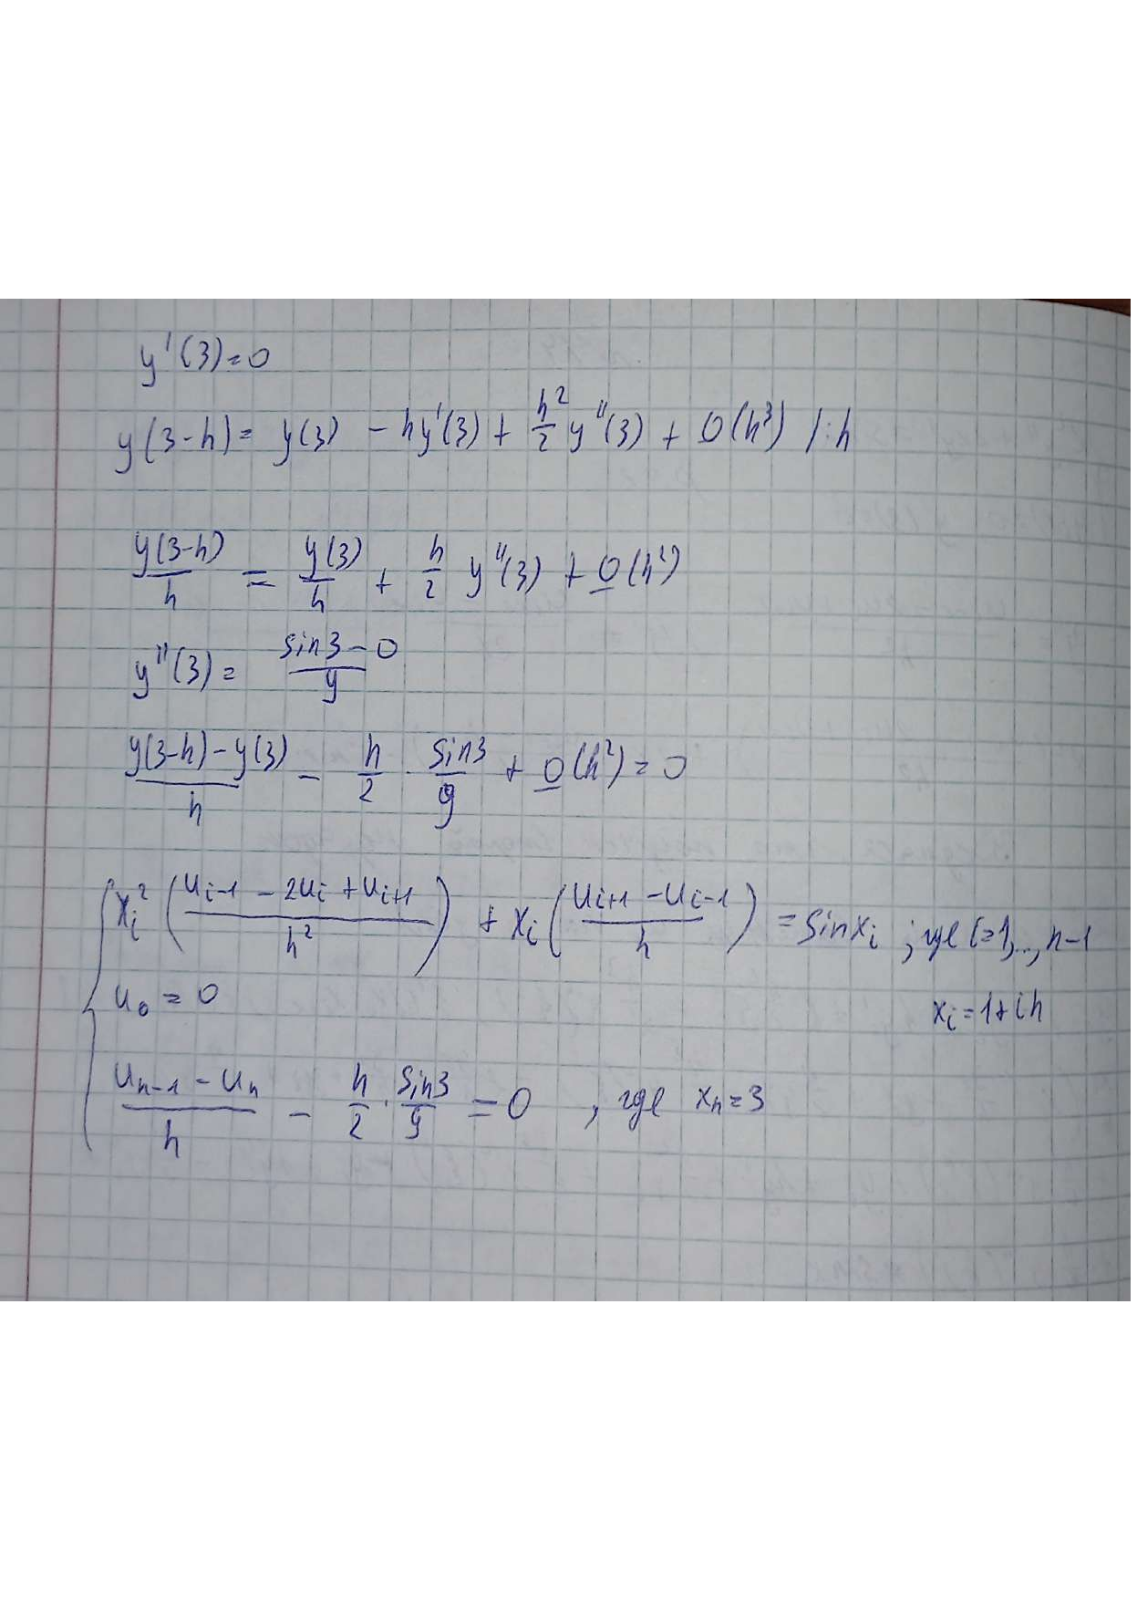 y'(3)=0
y(3-h) = y(3) - hy'(3) + h²/2 y''(3) + O(h³) /:h
y(3-h)/h = y(3)/h + h/2 y''(3) + O(h²)
y''(3) = (sin3-0)/9
(y(3-h)-y(3))/h - h/2 · sin3/9 + O(h²) = 0
x_i² ((u_{i-1} - 2u_i + u_{i+1})/h²) + x_i ((u_{i+1} - u_{i-1})/h) = sinx_i ; где i=1,..., n-1
u_0 = 0
x_i = 1+ih
(u_{n-1} - u_n)/h - h/2 · sin3/9 = 0 , где x_n = 3